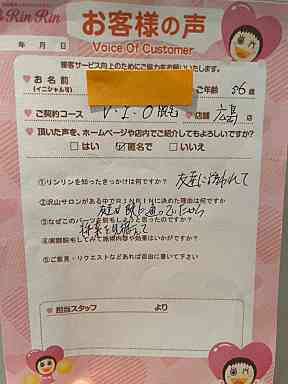 Rin Rin
お客様の声
Voice Of Customer
年 月 日
接客サービス向上のためにご協力をお願いいたします。
お名前
(イニシャル可)
ご年齢 56歳
ご契約コース V・I・O脱毛 店舗 広島店
頂いた声を、ホームページや店内でご紹介してもよろしいですか?
はい 匿名で いいえ
①リンリンを知ったきっかけは何ですか? 友達に誘われて
②沢山サロンがある中でRINRINに決めた理由は何ですか
友達が既に通っていたから
③なぜこのパーツを脱毛しようと思ったのですか?
介護を見据えて
④実際脱毛してみて施術内容や効果はいかがですか?
⑤ご意見・リクエストなどあれば自由に書いて下さい
担当スタッフ より